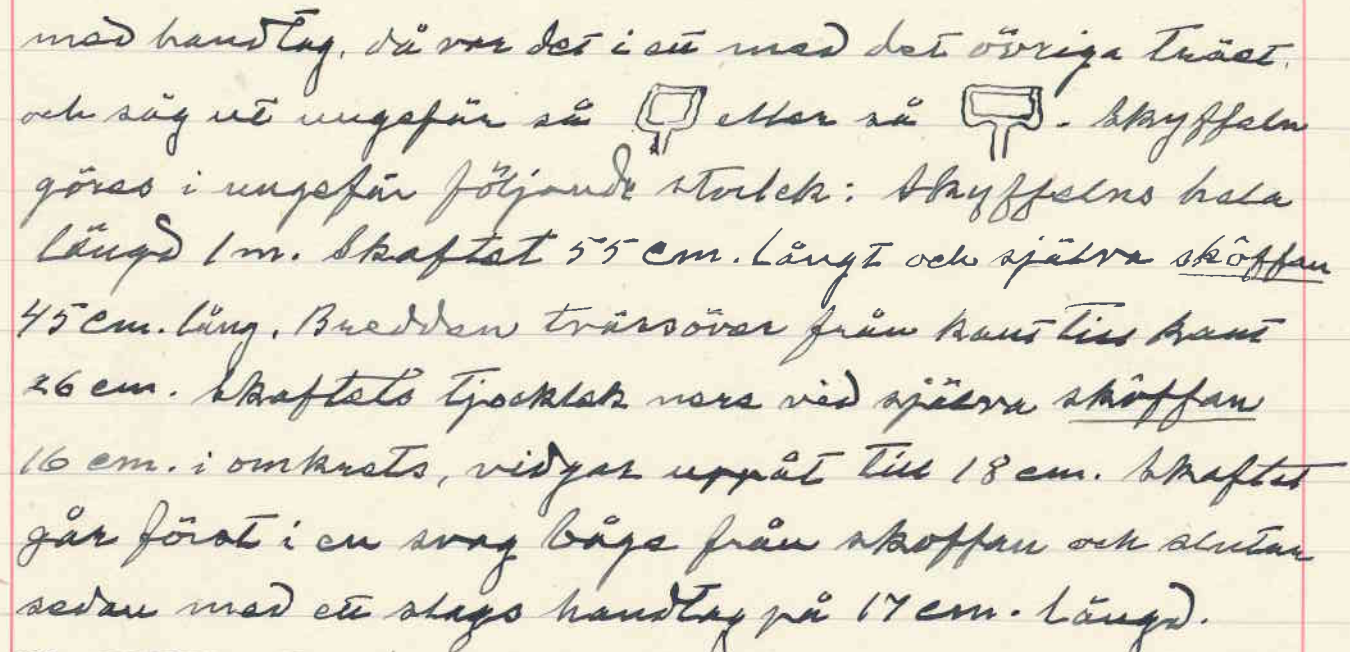 med handtag, då var det i ett med det övriga träet.
och såg ut ungefär så eller så . Skyffeln
göres i ungefär följande storlek: Skyffelns hela
längd 1 m. Skaftet 55 cm. långt och själva sköffan
45 cm. lång. Bredden tvärsöver från kant till kant
26 cm. Skaftets tjocklek nere vid själva sköffan
16 cm. i omkrets, vidgar uppåt till 18 cm. Skaftet
går först i en svag båge från skoffan och slutar
sedan med ett slags handtag på 17 cm. längd.